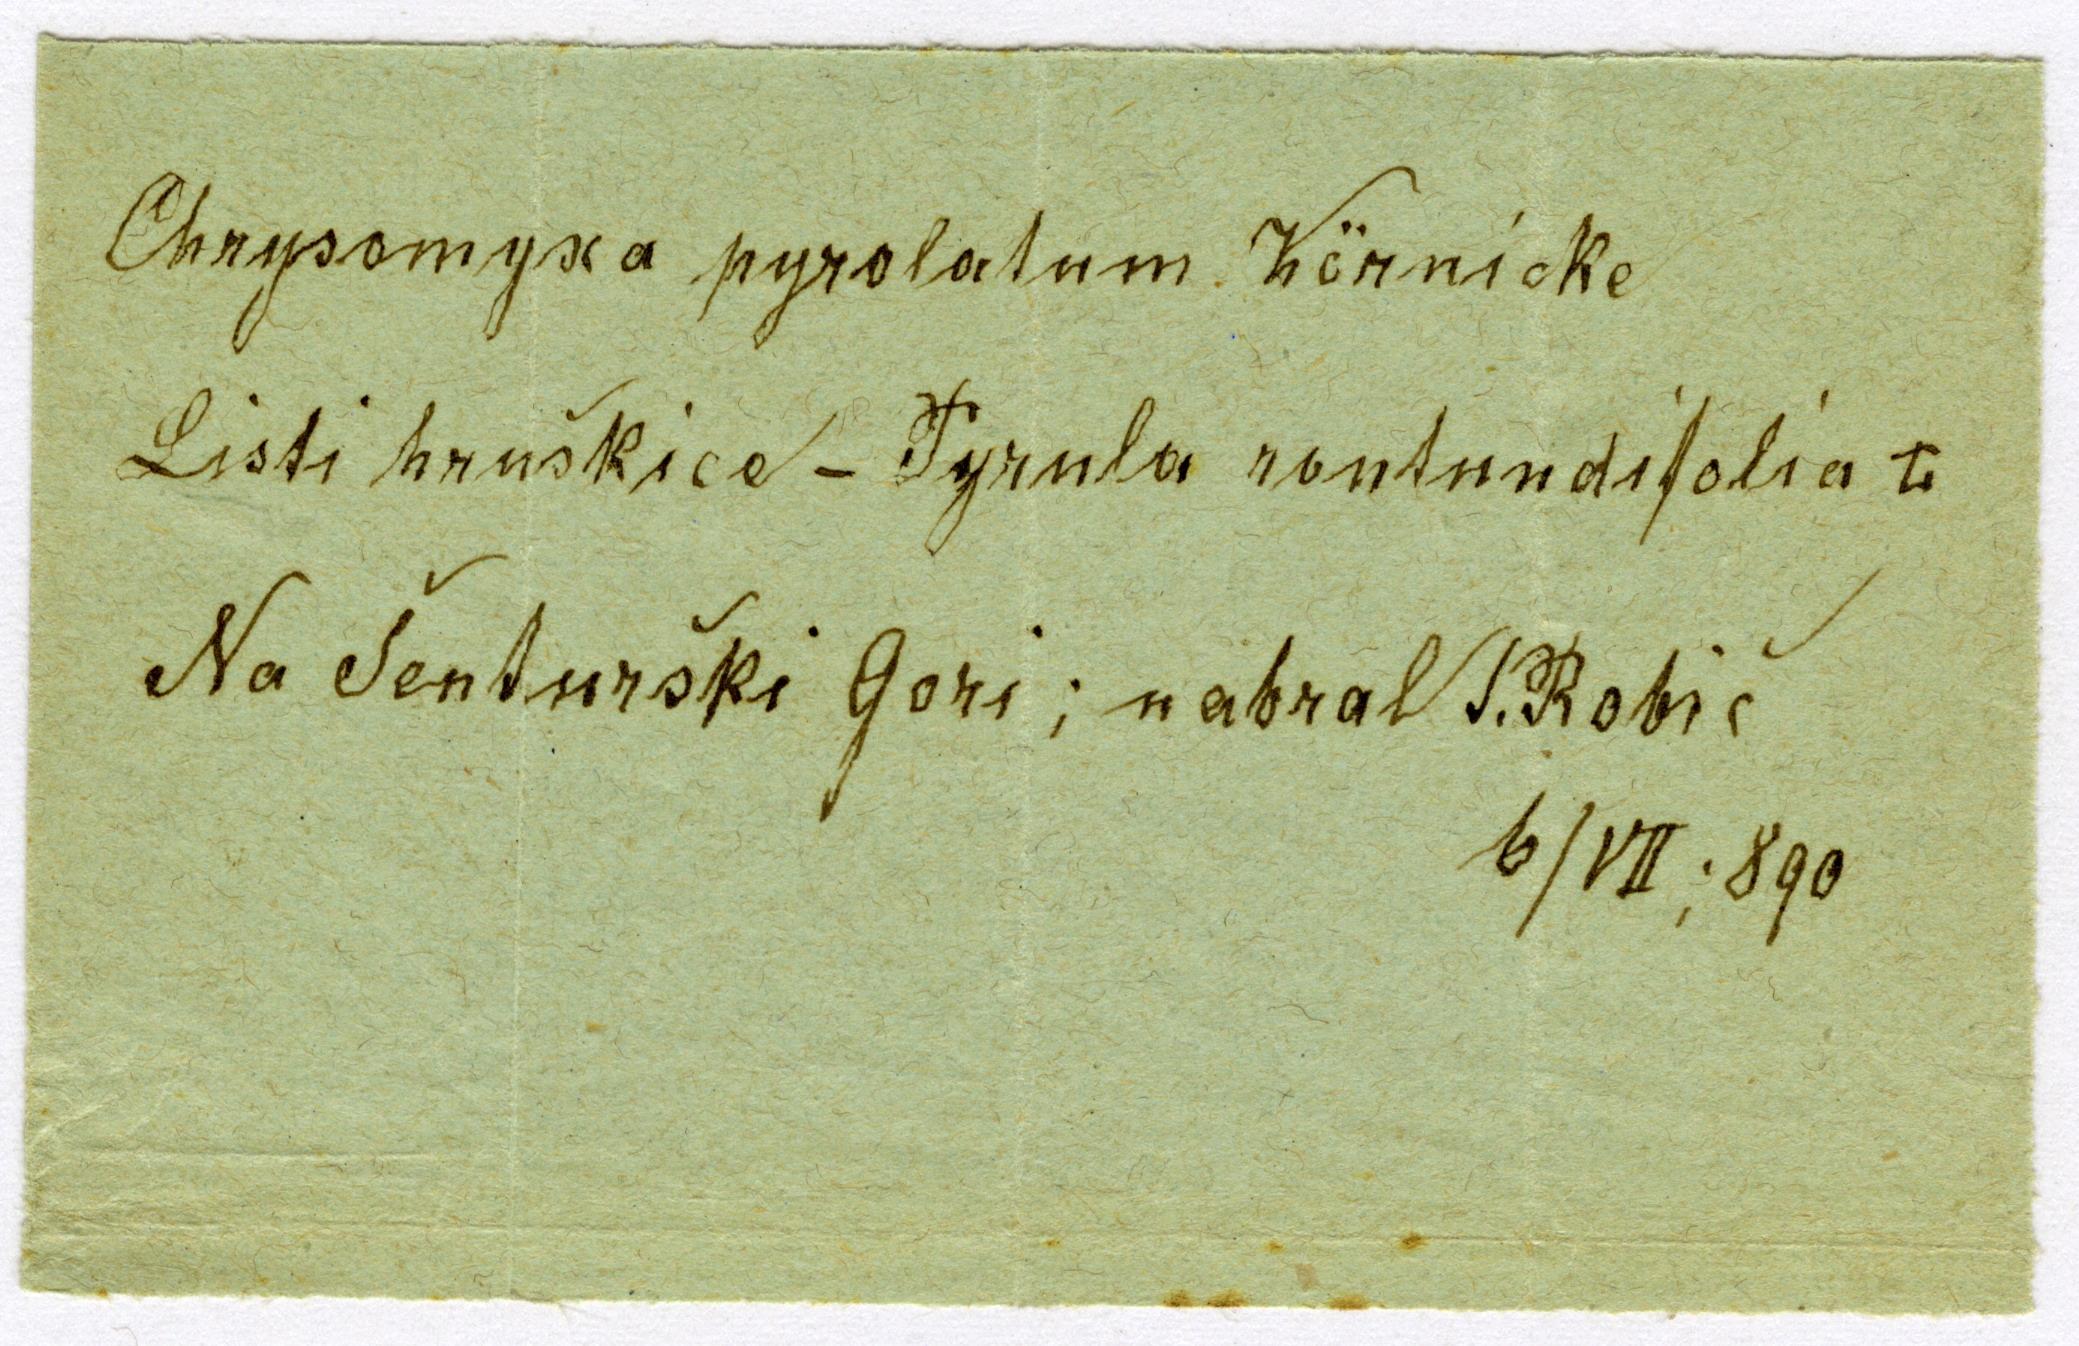 Chrysomyxa pyrolatum Körnicke
Listi hruškice – Pyrula rontundifolia
Na Šenturški Gori; nabral S. Robič
6/VII; 890